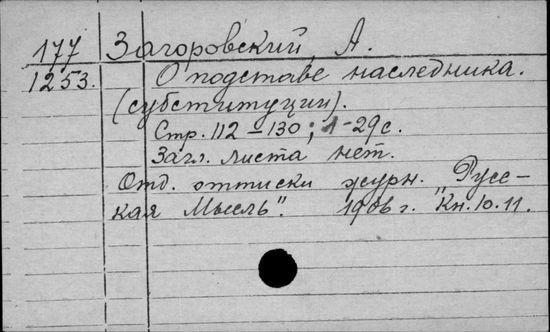 177 Загоровский, А.
1253. О подставе наследника.
(субституции).
Стр. 112–130; 1–29 с.
Загл. листа нет.
Отд. оттиски журн. "Русс-
кая Мысль". 1906 г. Кн. 10. 11.